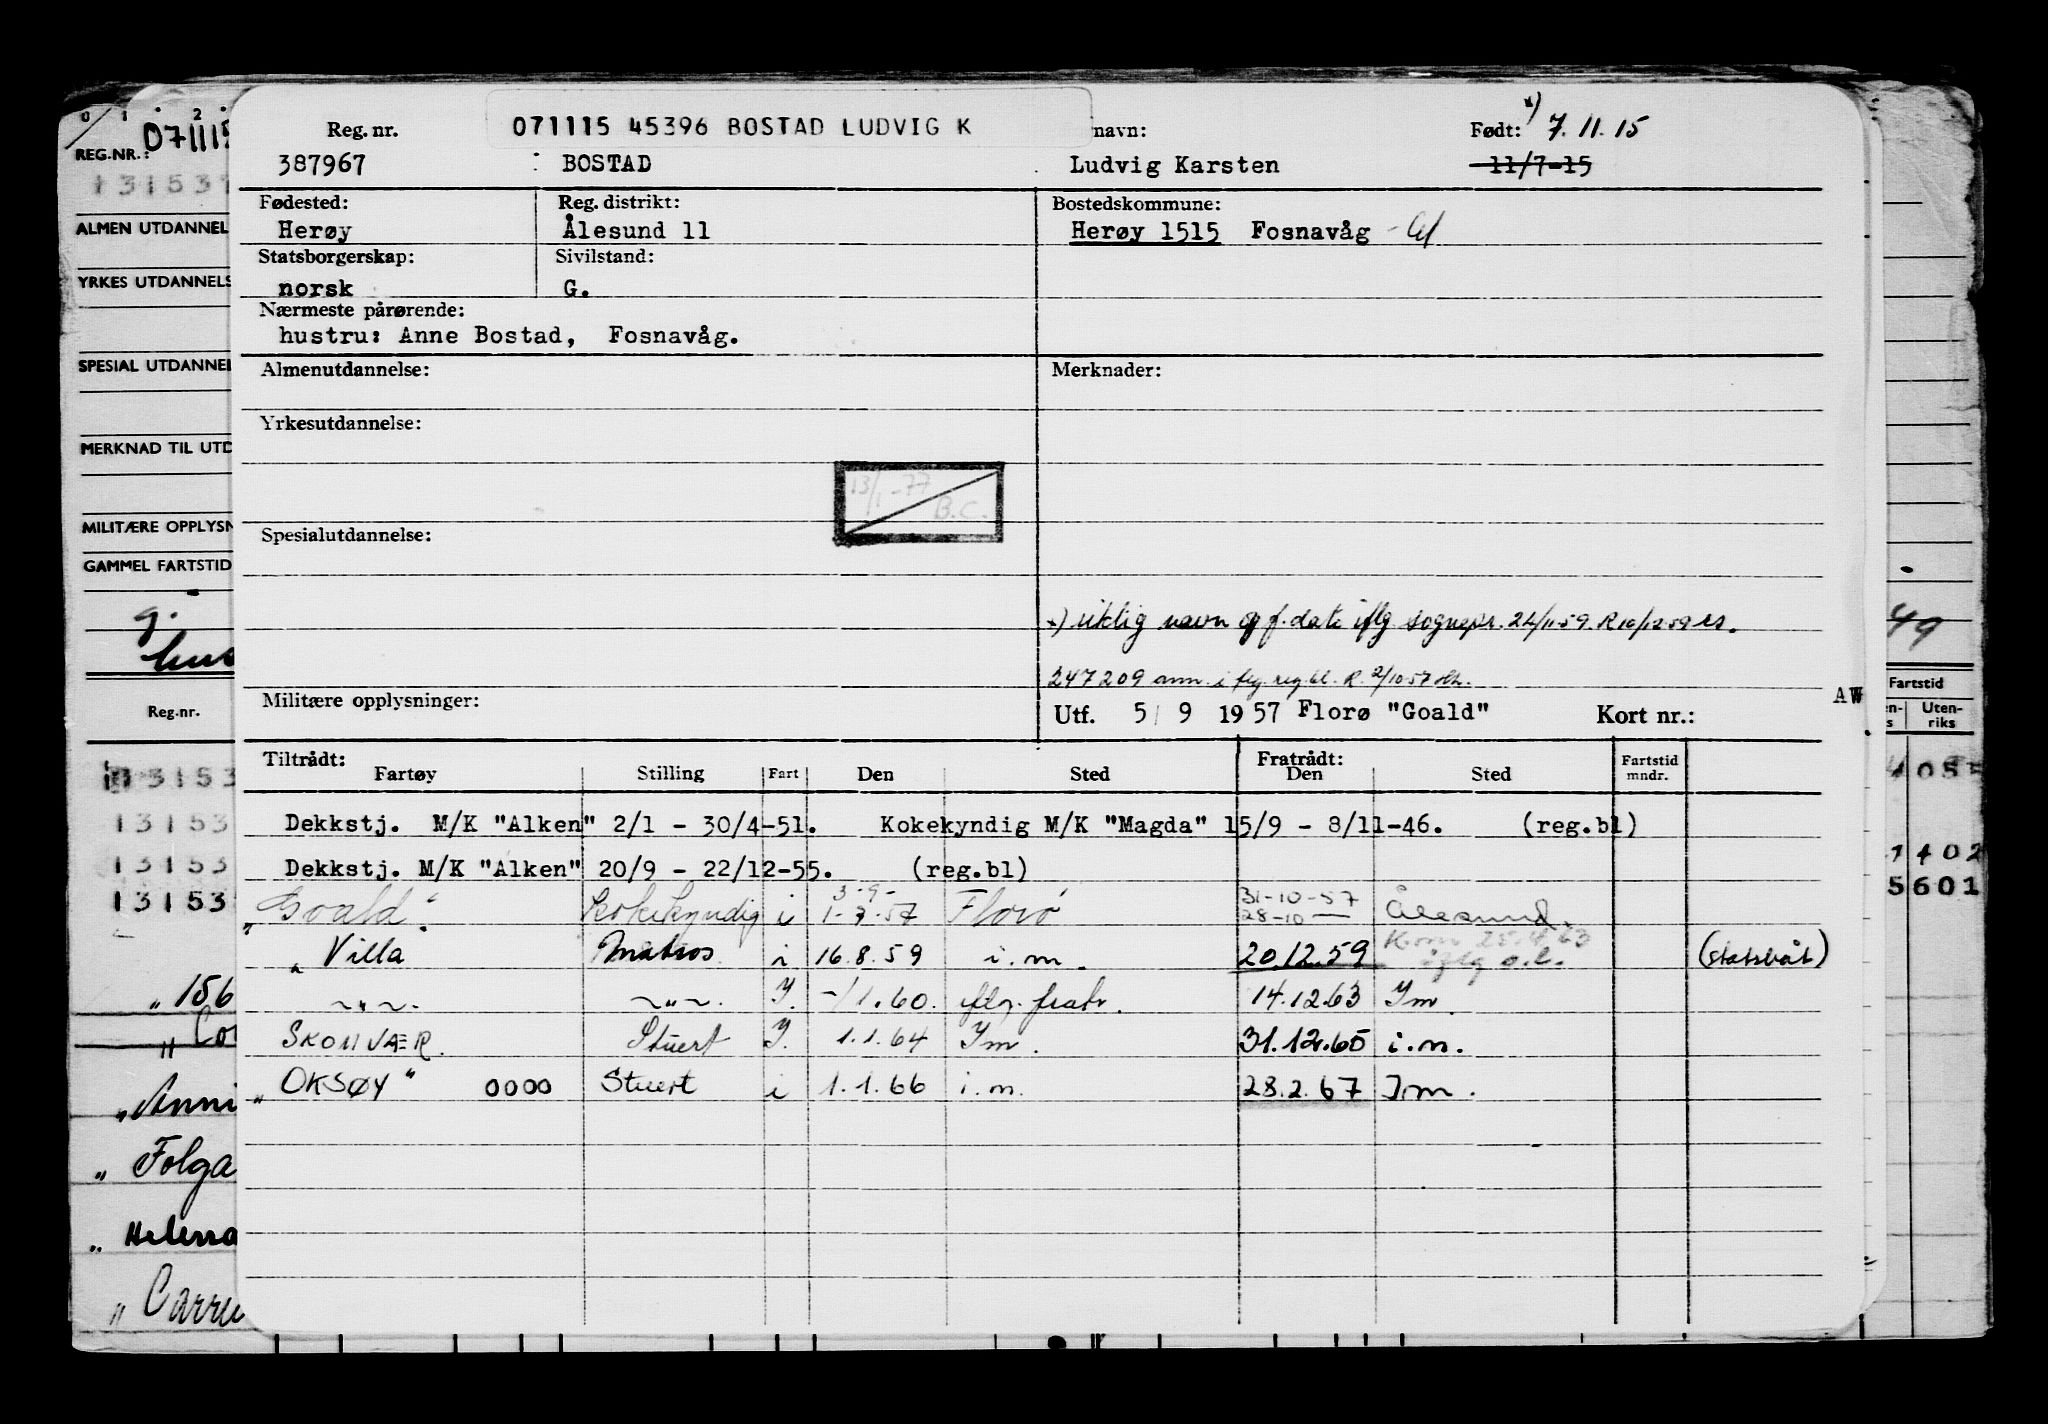 071115 45396 BOSTAD LUDVIG K
Reg. nr. navn: Født: *) 7.11.15
387967 BOSTAD Ludvig Karsten 11/7-15
Fødested: Reg. distrikt: Bostedskommune:
Herøy Ålesund 11 Herøy 1515 Fosnavåg
Statsborgerskap: Sivilstand:
norsk G.
Nærmeste pårørende:
hustru: Anne Bostad, Fosnavåg.
Almenutdannelse: Merknader:
Yrkesutdannelse:
13/1-77
B.C.
Spesialutdannelse:
*) riktig navn og f. dato iflg. sognepr. 24/11-59. R 10/12 59
247209 ann. i flg. reg.bl. R. 2/10 57
Militære opplysninger: Utf. 5/9 1957 Florø "Goald" Kort nr.: AW
Tiltrådt: Fratrådt: Fartstid
Fartøy Stilling Fart Den Sted Den Sted mndr.
Dekkstj. M/K "Alken" 2/1 - 30/4-51. Kokekyndig M/K "Magda" 15/9 - 8/11-46. (reg.bl)
Dekkstj. M/K "Alken" 20/9 - 22/12-55. (reg.bl)
3-9- 31-10-57
"Goald" kokekyndig i 1-7-57 Florø 28-10 — Ålesund
" Villa Matros i 16.8.59 i.m. 20.12.59 (statsbåt)
~"~. ~"~. Y. -/1.60. flg. fratr. 14.12.63 Ym
SKOMVÆR. Stuert Y. 1.1.64 Ym. 31.12.65 i.m.
"OKSØY" 0000 Stuert i 1.1.66 i.m. 28.2.67 I.m.
0 1 2
REG.NR.: 071115
ALMEN UTDANNEL
YRKES UTDANNELS
SPESIAL UTDANNEL
MERKNAD TIL UTD
MILITÆRE OPPLYSN
GAMMEL FARTSTID
g.
hus
49
Reg.nr.
Fartstid
Uten-
riks
13153
13153
13153
1402
5601
" 156
" Co
" Anni
" Folga
" Helena